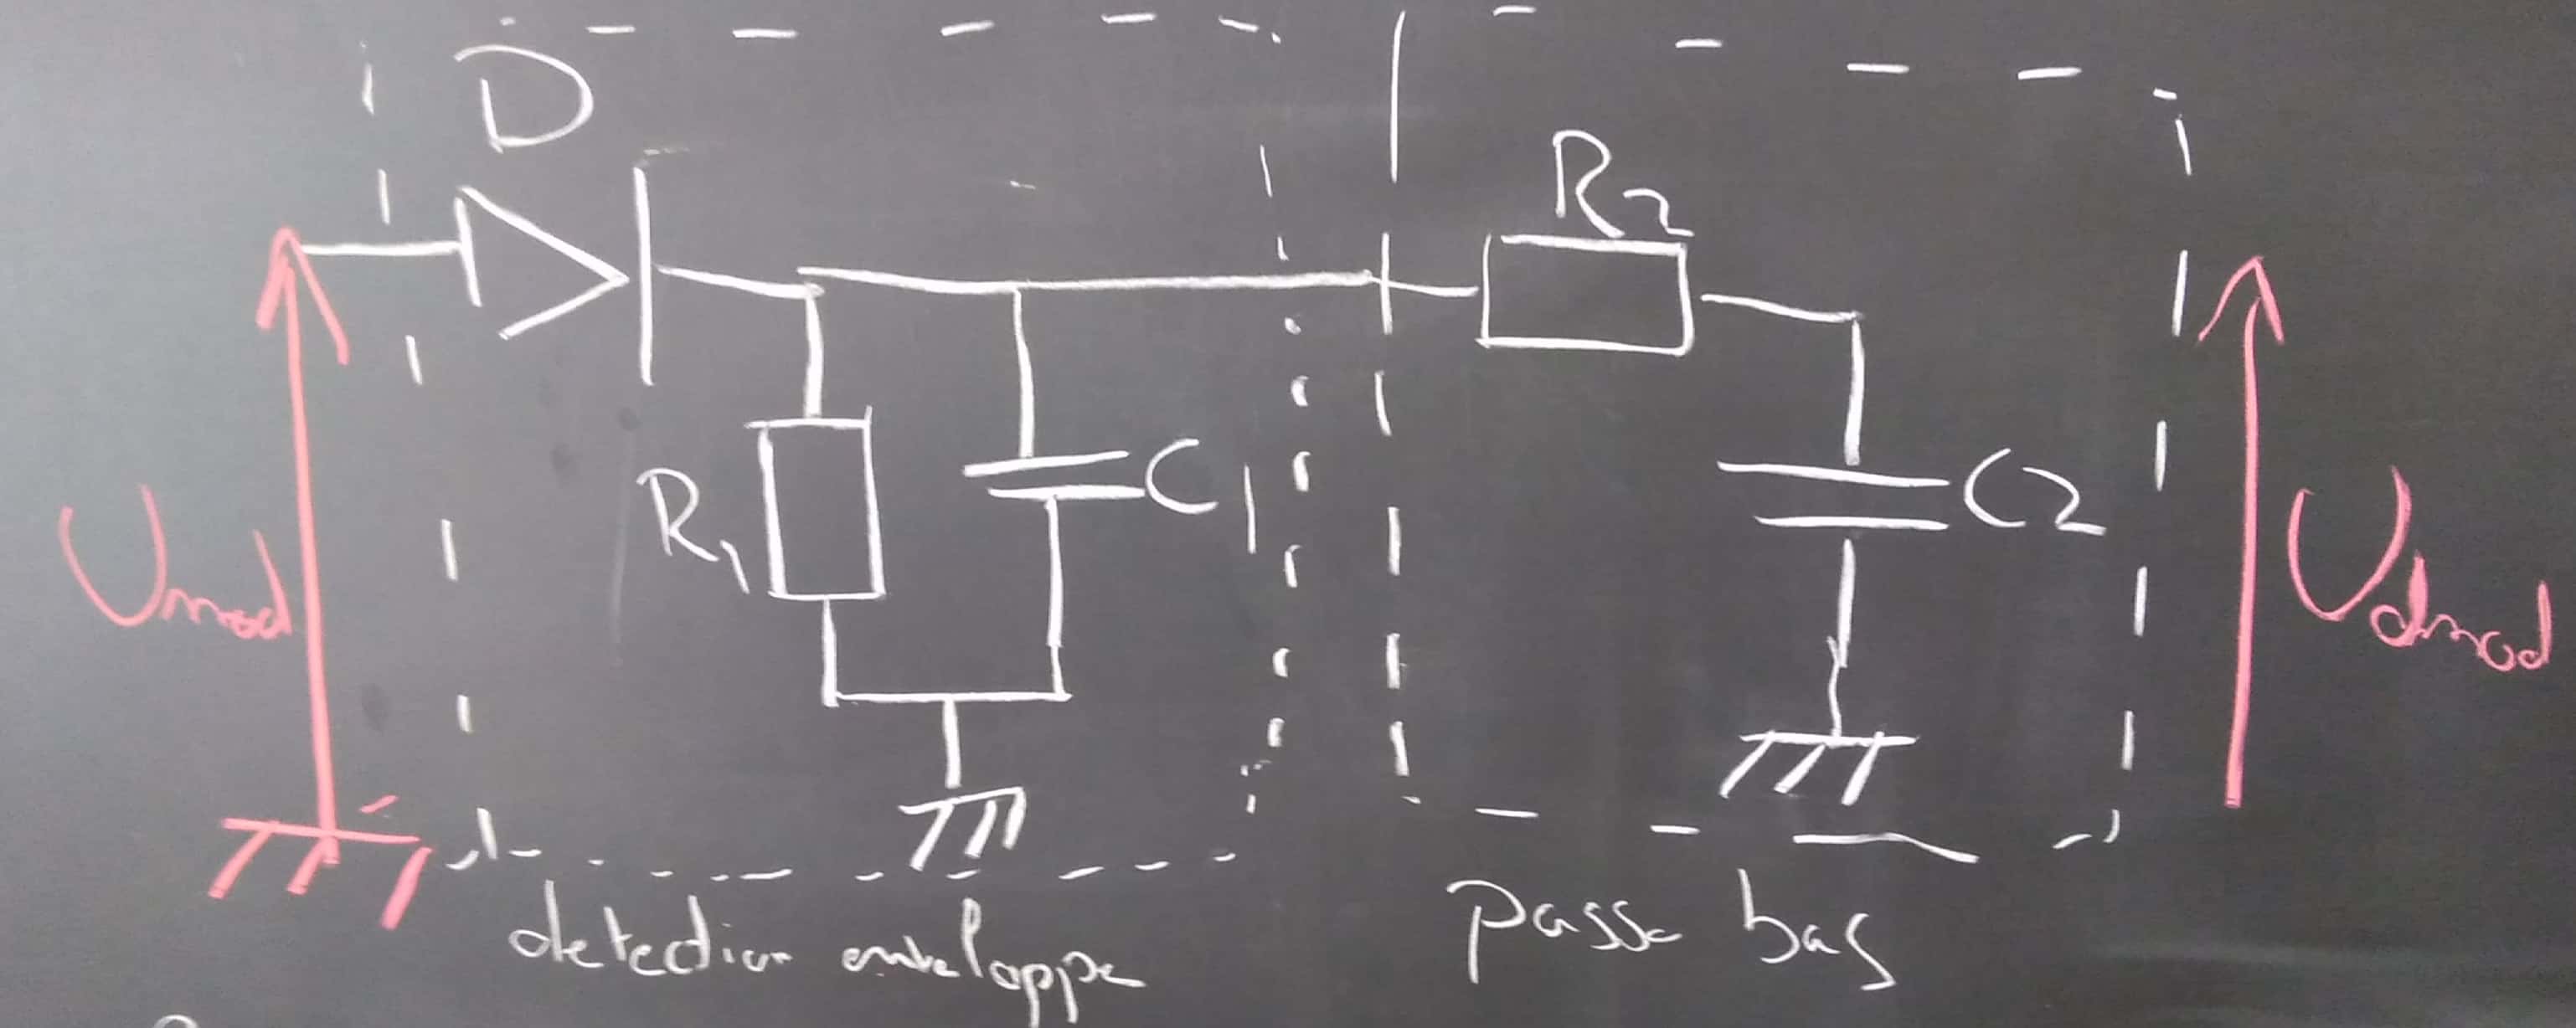 D
R2
R1
C1
C2
Umod
Udmod
detection enveloppe
passe bas